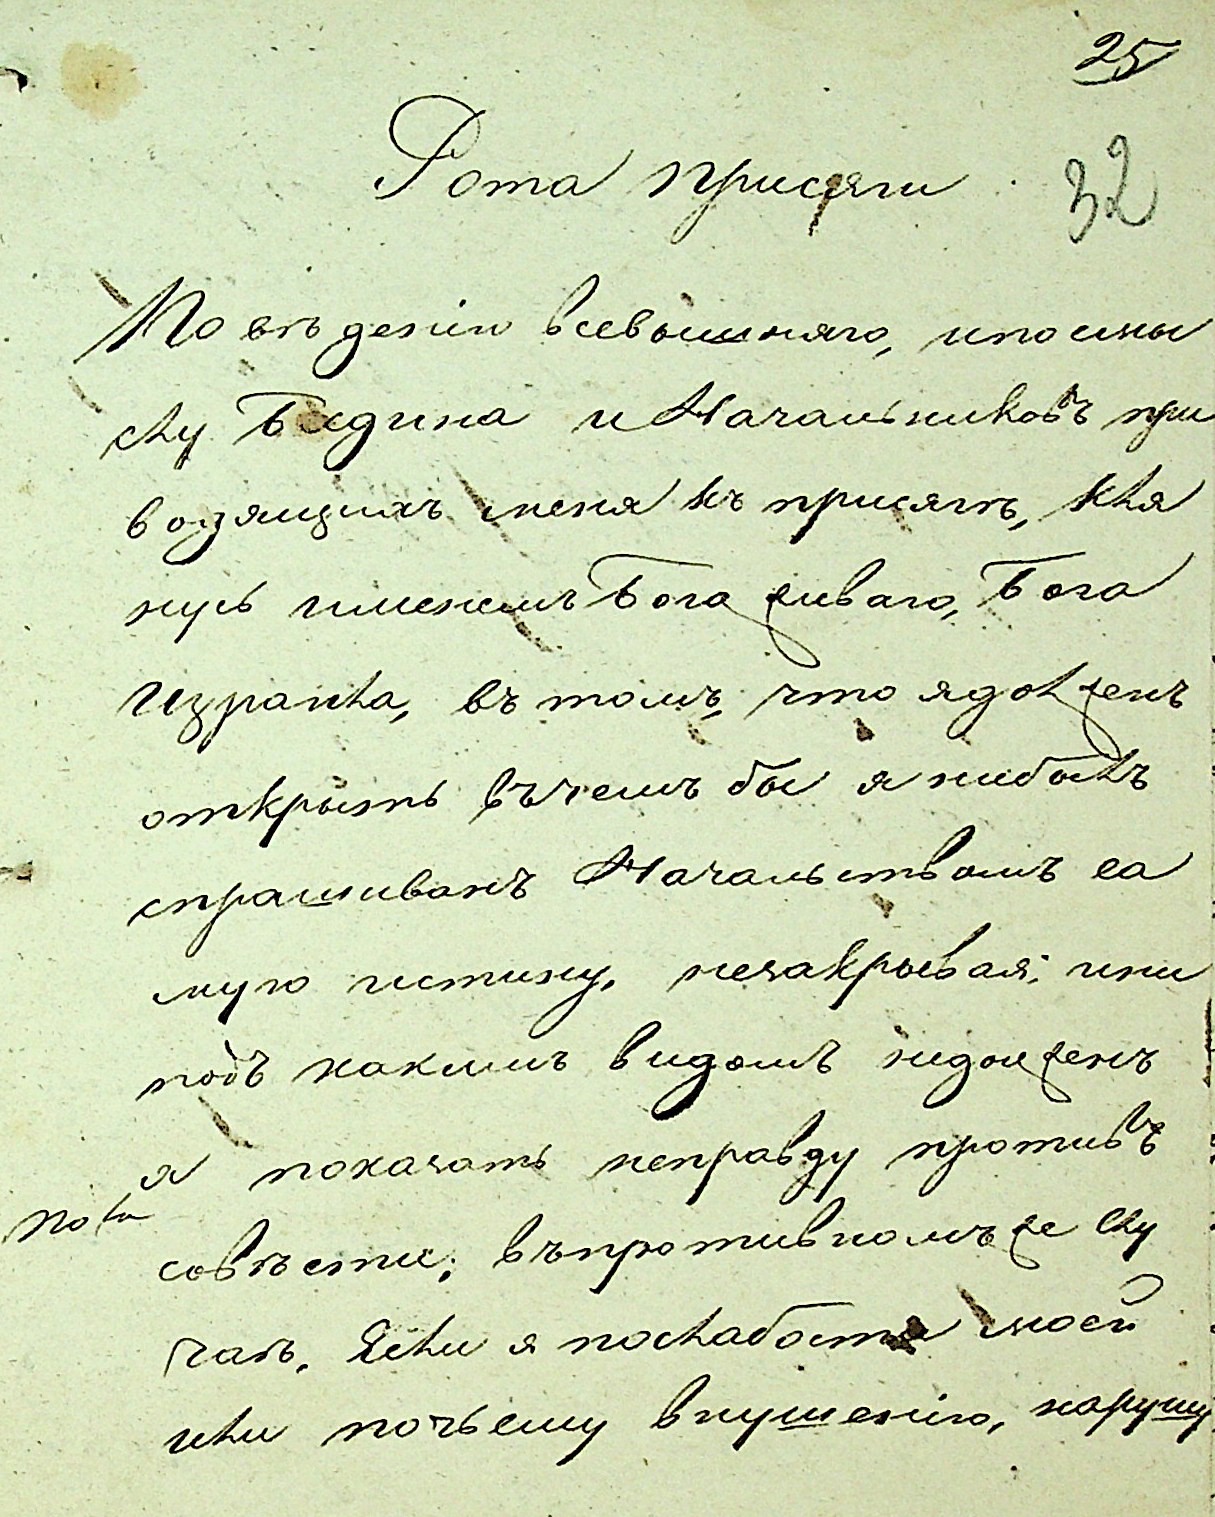 25
Рота присяги
32
По вѣденiю всевышняго, ипосмы
слу Бедина и Начальниковъ при
водящихъ меня къ присягѣ, кля
нусь именемъ Бога живаго, Бога
Израиля, въ томъ, что ядолженъ
открыть въчемъ бы я нибылъ
спрашиванъ Начальствомъ са
мую истину, незакрывая; ини
подъ какимъ видомъ недолженъ
я показать неправду противъ
совѣсти; въпротивномъ же слу
чаѣ, Если я послабости моей
или почьему внушенiю, нарушу